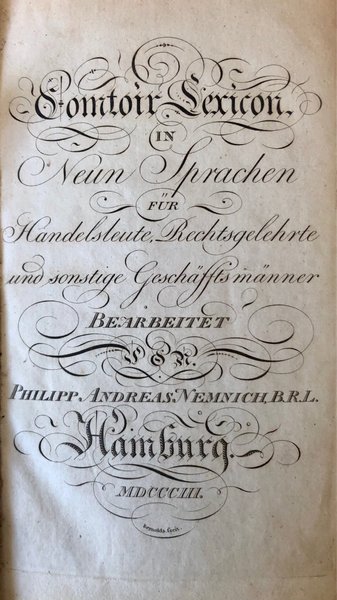 Comtoir Lexicon,
IN
Neun Sprachen
FÜR
Handelsleute, Rechtsgelehrte
und sonstige Geschäffts männer
BEARBEITET
VON
PHILIPP ANDREAS NEMNICH, B.R.L.
Hamburg.
MDCCCIII.